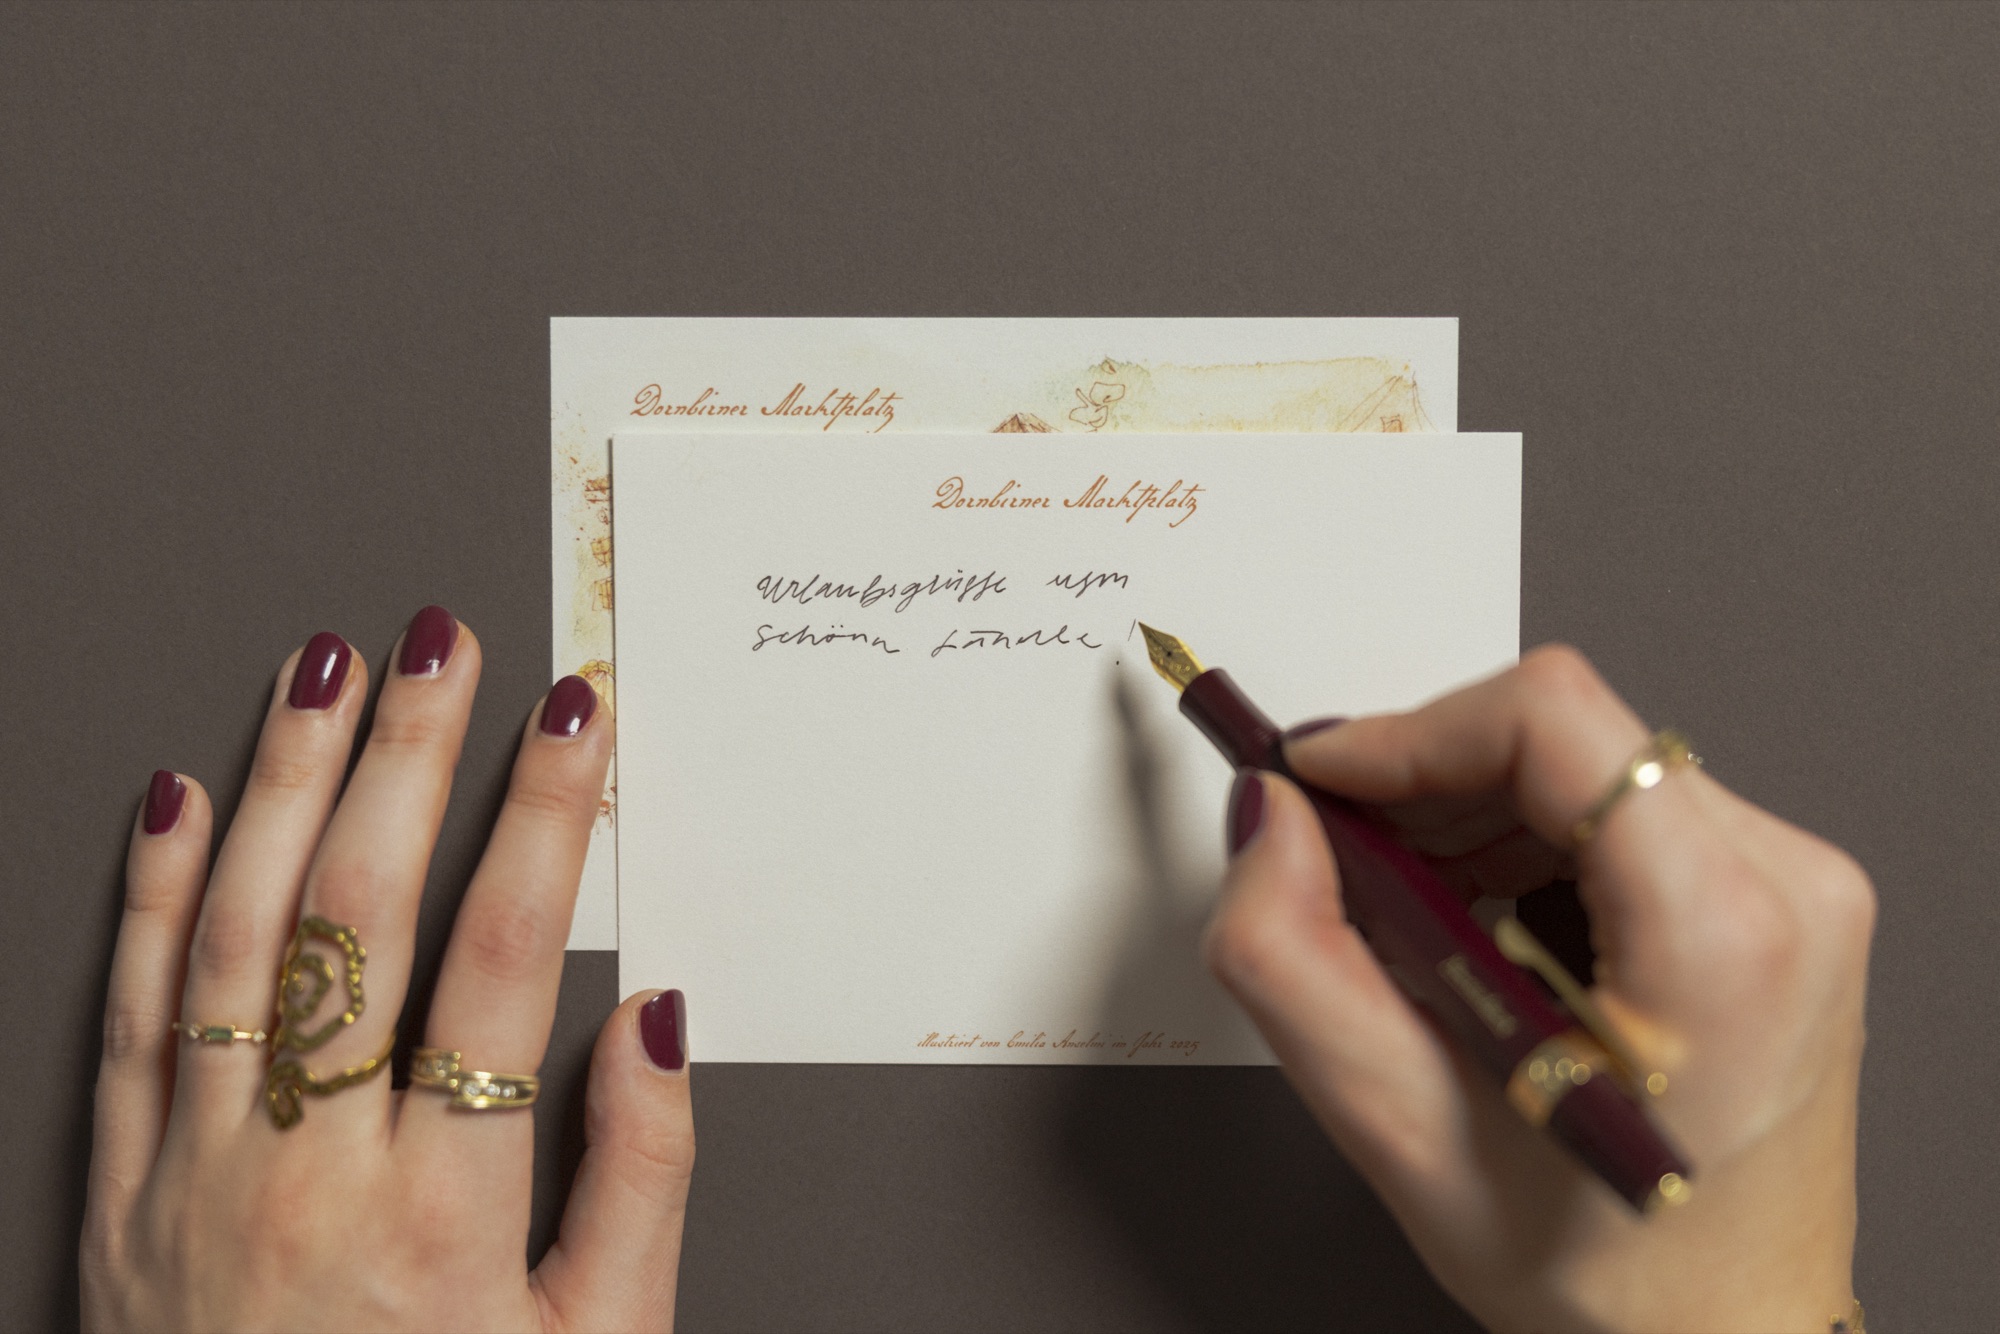 Dornbirner Marktplatz
Dornbirner Marktplatz
Urlaubsgrüsse usm
schöna Ländle!
illustriert von Emilia Anselmi im Jahr 2025